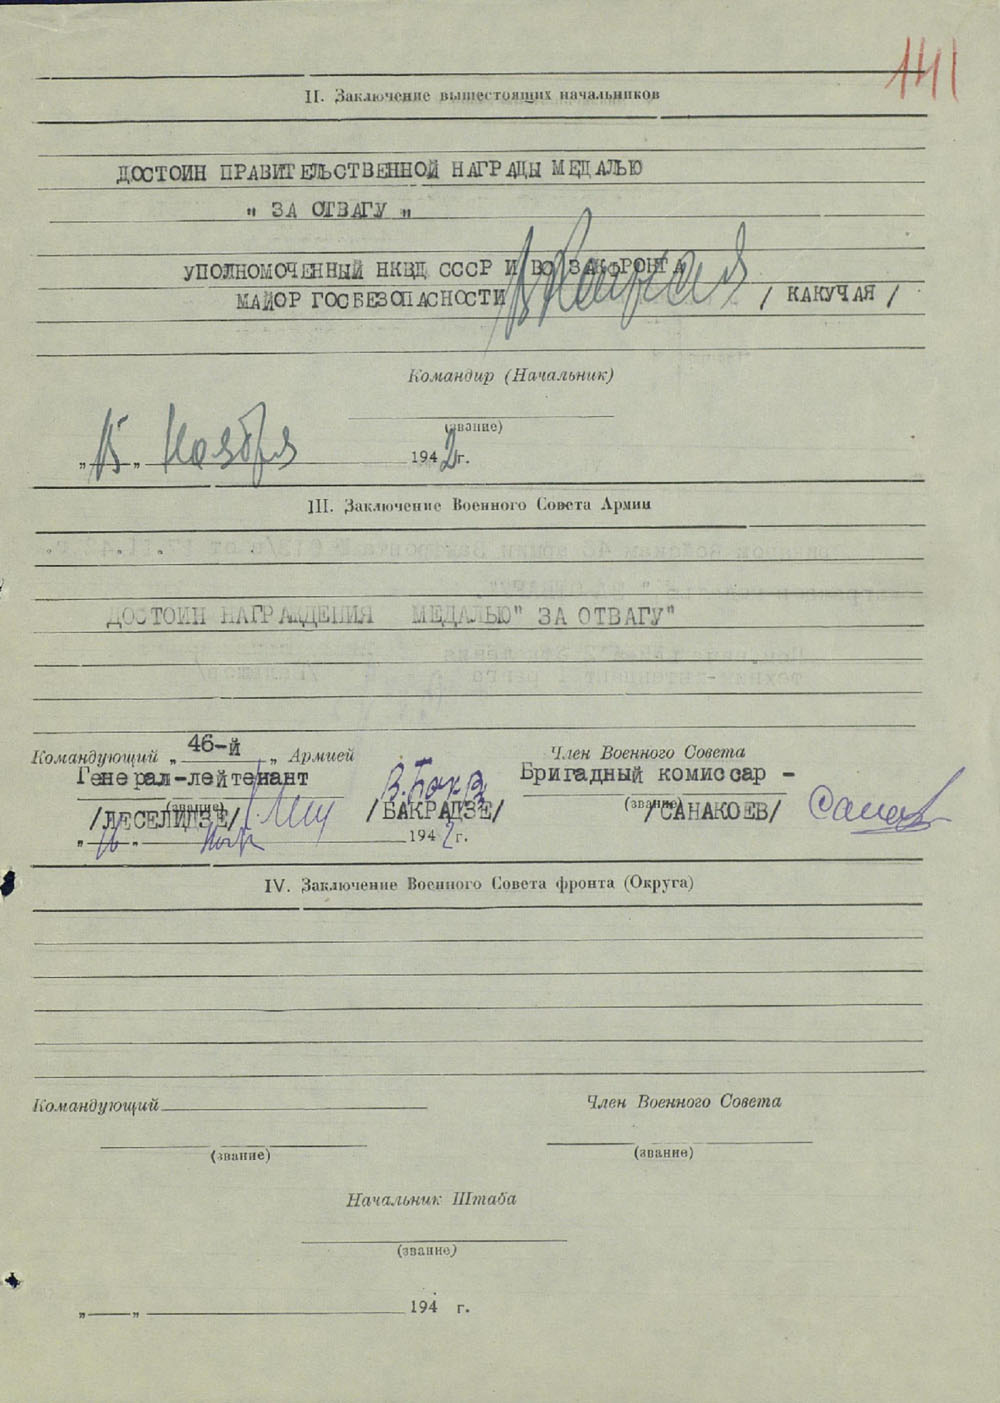 141
II. Заключение вышестоящих начальников
ДОСТОИН ПРАВИТЕЛЬСТВЕННОЙ НАГРАДЫ МЕДАЛЬЮ
" ЗА ОТВАГУ "
УПОЛНОМОЧЕННЫЙ НКВД СССР И ВС ЗАКФРОНТА
МАЙОР ГОСБЕЗОПАСНОСТИ / КАКУЧАЯ /
Командир (Начальник)
(звание)
„15" Ноября 1942 г.
III. Заключение Военного Совета Армии
ДОСТОИН НАГРАЖДЕНИЯ МЕДАЛЬЮ" ЗА ОТВАГУ"
Командующий „ 46-й „ Армией Член Военного Совета
Генерал-лейтенант Бригадный комиссар -
(звание) (звание)
/ЛЕСЕЛИДЗЕ/ /БАКРАДЗЕ/ /САНАКОЕВ/
„16" нояб 1942 г.
IV. Заключение Военного Совета фронта (Округа)
Командующий Член Военного Совета
(звание) (звание)
Начальник Штаба
(звание)
„ " 194 г.